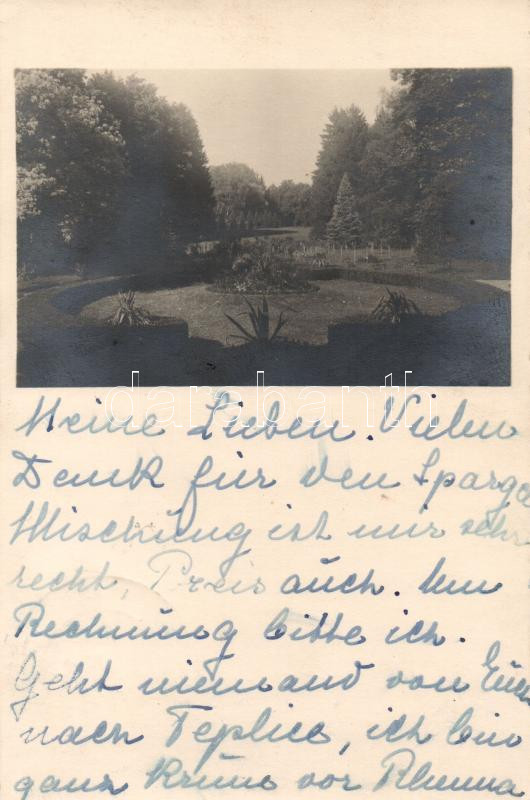 darabanth
Meine Lieben. Vielen
Dank für den Spargel
Mischung ist mir sehr
recht, Preis auch. Um
Rechnung bitte ich.
Geht niemand von Euch
nach Teplice, ich bin
ganz krum vor Rheuma